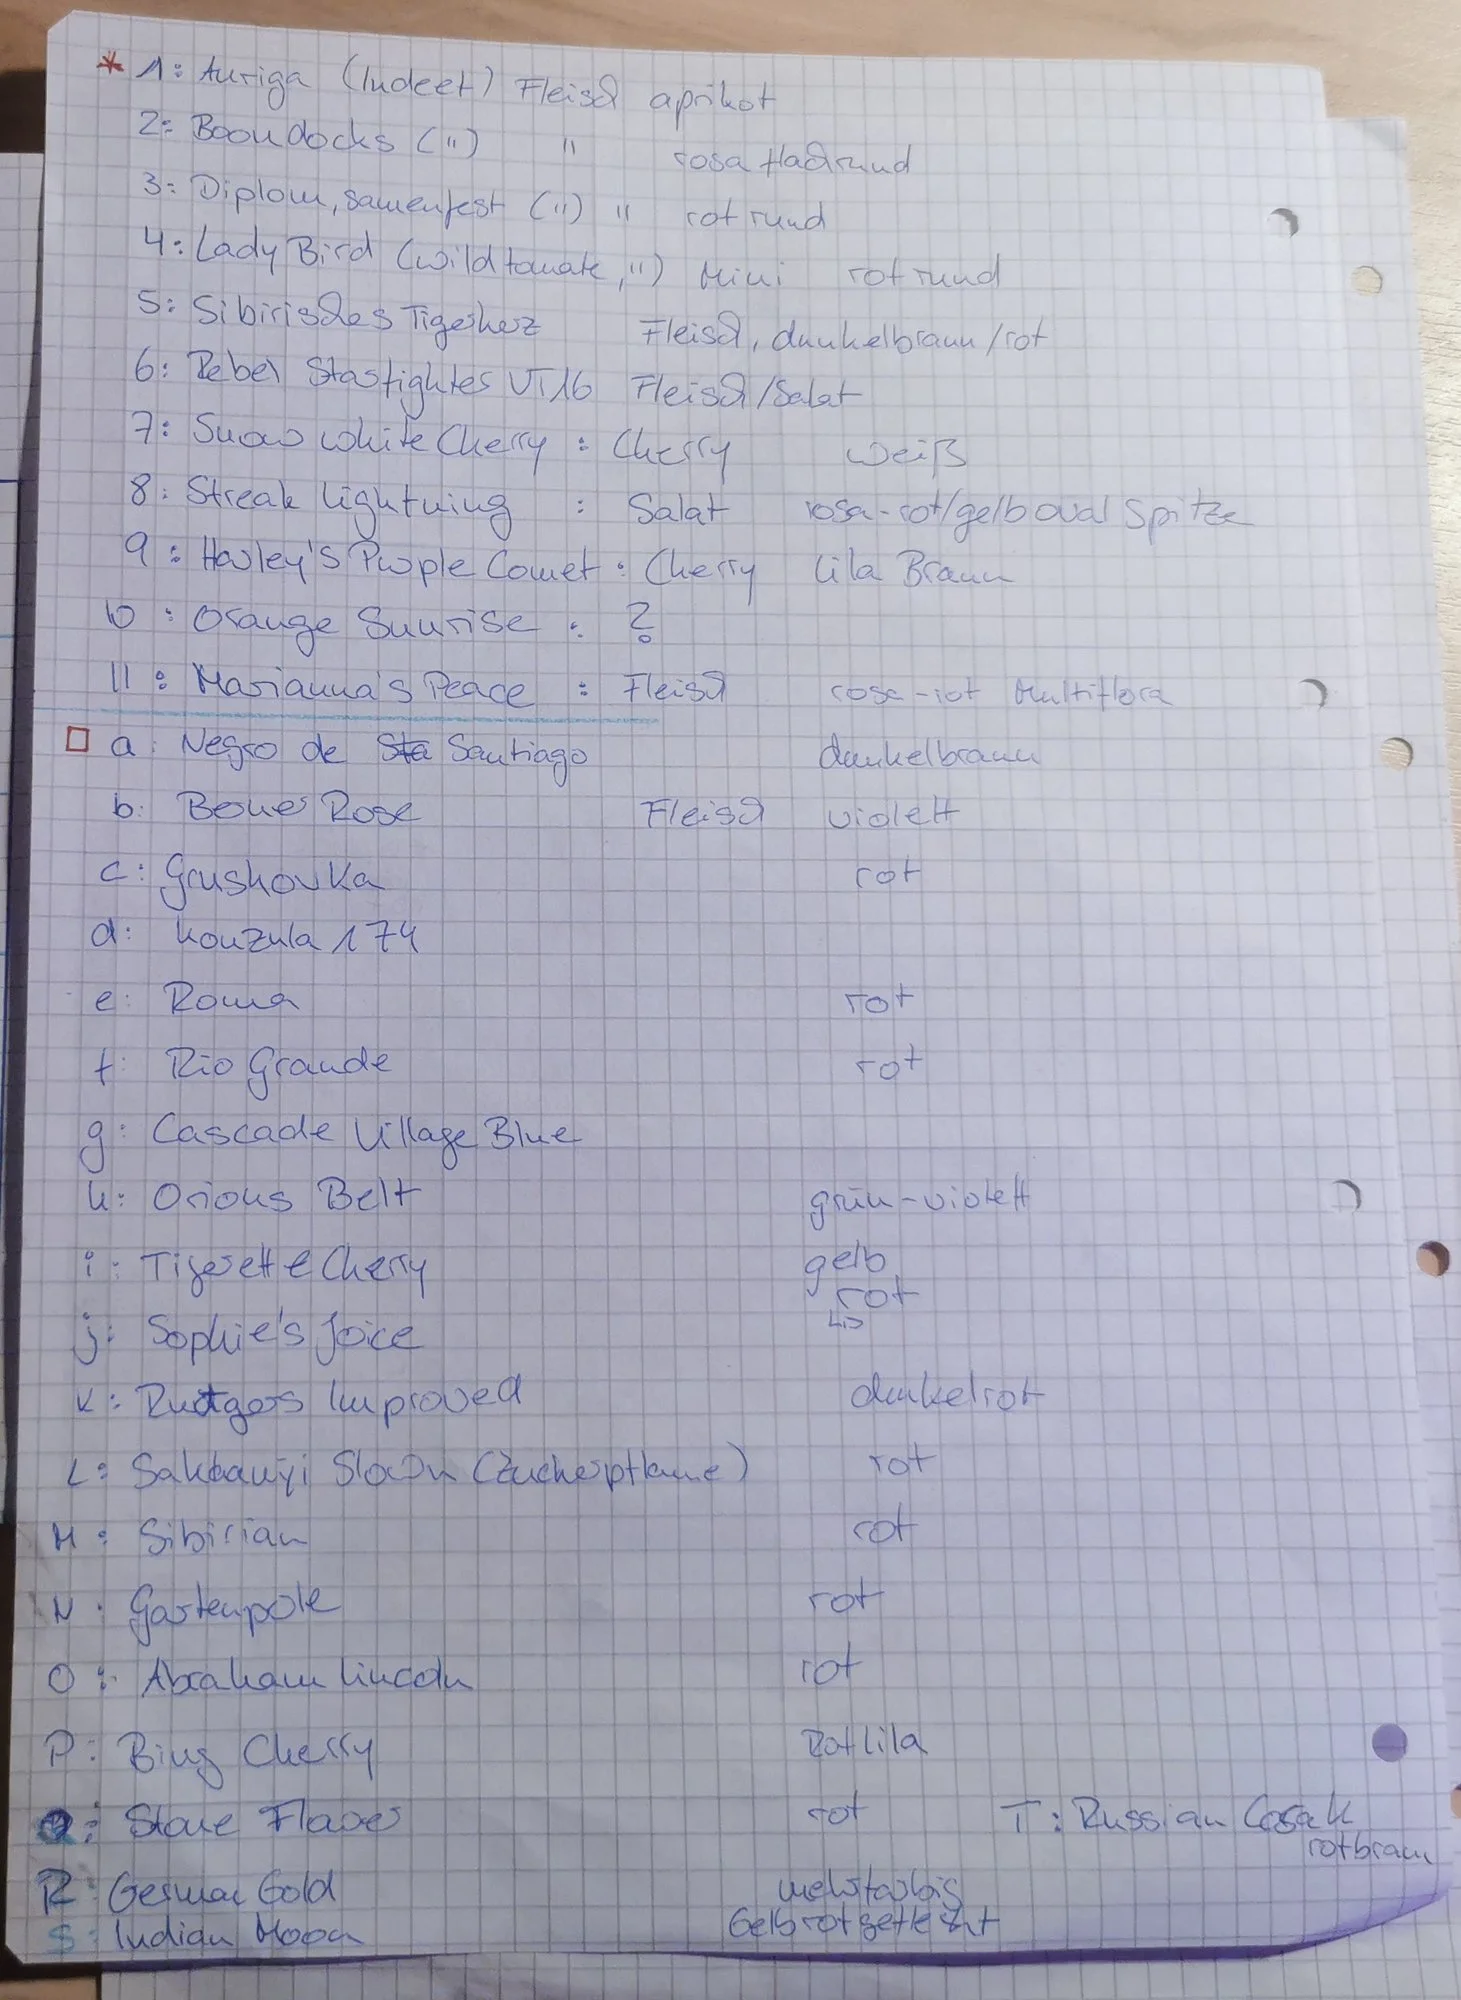 * 1: Auriga (Indeet) Fleisch aprikot
2: Boondocks (") " rosa flachrund
3: Diplom, samenfest (") " rot rund
4: Lady Bird (Wildtomate, ") Mini rot rund
5: Sibirisches Tigerherz Fleisch, dunkelbraun/rot
6: Rebel Starfighter VT16 Fleisch/Salat
7: Snow White Cherry : Cherry weiß
8: Streak Lightning : Salat rosa-rot/gelb oval Spitze
9: Harley's Purple Comet : Cherry Lila Braun
10: Orange Sunrise : ?
11: Marianna's Peace : Fleisch rosa-rot Multiflora
a: Negro de Sta Santiago dunkelbraun
b: Berner Rose Fleisch violett
c: Grushovka rot
d: Konzula 174
e: Roma rot
f: Rio Grande rot
g: Cascade Village Blue
h: Orions Belt grün-violett
i: Tigerette Cherry gelb
rot
j: Sophie's Joice
k: Rutgers Improved dunkelrot
L: Slocvn (Zuckerpflaume) rot
M: Sibirian rot
N: Gartenpole rot
O: Abraham Lincoln rot
P: Bing Cherry Rot lila
Q: Flaver rot T: Russian Cosak
rotbraun
R: German Gold mehrfarbig
S: Indian Moon Gelb rot gefleckt